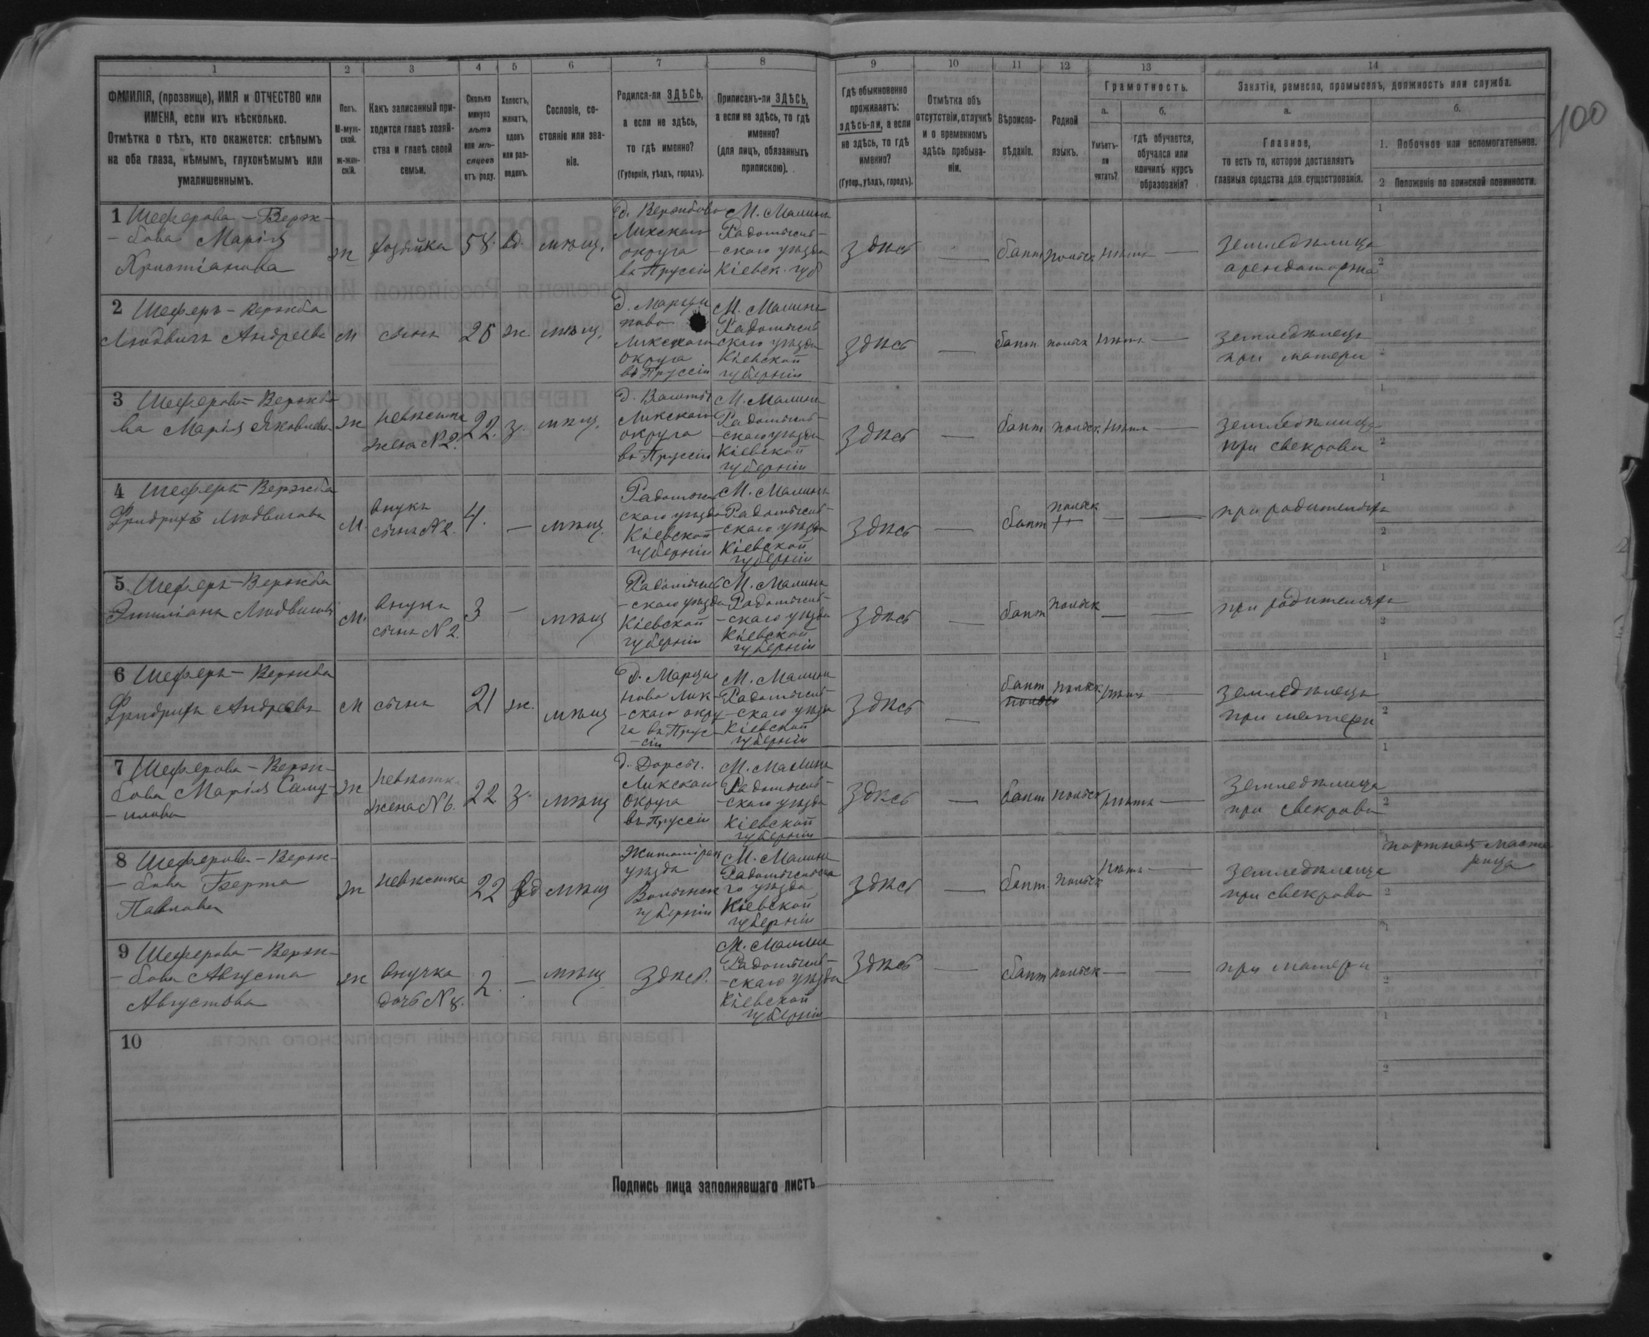 1 2 3 4 5 6 7 8 9 10 11 12 13 14
ФАМИЛІЯ, (прозвище), ИМЯ и ОТЧЕСТВО или
ИМЕНА, если ихъ нѣсколько.
Отмѣтка о тѣхъ, кто окажется: слѣпымъ
на оба глаза, нѣмымъ, глухонѣмымъ или
умалишеннымъ.
Полъ.
М-муж-
ской.
ж-жен-
скій.
Какъ записанный при-
ходится главѣ хозяй-
ства и главѣ своей
семьи.
Сколько
минуло
лѣтъ
или мѣ-
сяцевъ
отъ роду.
Холостъ,
женатъ,
вдовъ
или раз-
веденъ.
Сословіе, со-
стояніе или зва-
ніе.
Родился-ли ЗДѢСЬ,
а если не здѣсь,
то гдѣ именно?
(Губернія, уѣздъ, городъ).
Приписанъ-ли ЗДѢСЬ,
а если не здѣсь, то гдѣ
именно?
(для лицъ, обязанныхъ
припискою).
Гдѣ обыкновенно
проживаетъ:
здѣсь-ли, а если
не здѣсь, то гдѣ
именно?
(Губер., уѣздъ, городъ).
Отмѣтка объ
отсутствіи, отлучкѣ
и о временномъ
здѣсь пребыва-
ніи.
Вѣроиспо-
вѣданіе.
Родной
языкъ.
Грамотность.
а.
Умѣетъ-
ли
читать?
б.
гдѣ обучается,
обучался или
кончилъ курсъ
образованія?
Занятіе, ремесло, промыселъ, должность или служба.
а.
Главное,
то есть то, которое доставляетъ
главныя средства для существованія.
б.
1. Побочное или вспомогательное.
2 Положеніе по воинской повинности.
100
1 Шеферова-Верж-
-бова Марія
Христіанова
ж хозяйка 58 вд мѣщ.
д. Вержбово
Ликскаго
округа
въ Пруссіи
М. Малина
Радомысль-
-скаго уѣзда
Кіевск. губ
здѣсь — бапт польск нѣтъ —
земледѣлица
арендаторша
2 Шеферъ-Вержба
Людвигъ Андреевъ
м сынъ 25 ж. мѣщ.
Ликскаго
округа
въ Пруссіи
М. Малина
Радомысль
скаго уѣзда
Кіевской
губерніи
здѣсь — бапт польск нѣтъ —
земледѣлецъ
при матери
3 Шеферова-Вержбо-
ва Марія Яковлева
ж невѣстка
жена №2. 22 з. мѣщ.
Ликскаго
округа
въ Пруссіи
М. Малина
Радомысль-
-скаго уѣзда
Кіевской
губерніи
здѣсь — бапт польск нѣтъ —
земледѣлица
при свекрови
4 Шеферъ-Вержба
Фридрихъ Людвиговъ
м внукъ
сынъ №2. 4. — мѣщ.
Радомысль
скаго уѣзда
Кіевской
губерніи
М. Малина
Радомысль-
-скаго уѣзда
Кіевской
губерніи
здѣсь — бапт польск — —
при родителяхъ
5 Шеферъ-Вержба
Людвиговъ
м. внукъ
сынъ №2 3 — мѣщ
Радомысль
-скаго уѣзда
Кіевской
губерніи
М. Малина
Радомысль-
-скаго уѣзда
Кіевской
губерніи
здѣсь — бапт польск — —
при родителяхъ
6 Шеферъ-Вержба
Фридрихъ Андреевъ
м сынъ 21 ж. мѣщ
д. Марци
ново Лик-
-скаго окру
га въ Прус-
-сіи
М. Малина
Радомысль-
-скаго уѣзда
Кіевской
губерніи
здѣсь — бапт польск нѣтъ —
земледѣлецъ
при матери
7 Шеферова-Верж-
бова Марія Саму-
-илова
ж невѣстк.
жена №6. 22 з. мѣщ
Ликскаго
округа
въ Пруссіи
М. Малина
Радомысль-
-скаго уѣзда
Кіевской
губерніи
здѣсь — бапт польск нѣтъ —
земледѣлица
при свекрови
8 Шеферова-Верж-
-бова Берта
Павлова
ж невѣстка 22 вд мѣщ
Житомірск
уѣзда
Волынск
губерніи
М. Малина
Радомысльска
го уѣзда
Кіевской
губерніи
здѣсь — бапт польск нѣтъ —
земледѣлица
при свекрови
портная масте
рица
9 Шеферова-Верж-
-бова Августа
Августова
ж внучка
дочь №8. 2 — мѣщ здѣсь.
М. Малина
Радомысль-
-скаго уѣзда
Кіевской
губерніи
здѣсь — бапт польск — —
при матери
10
Подпись лица заполнявшаго листъ